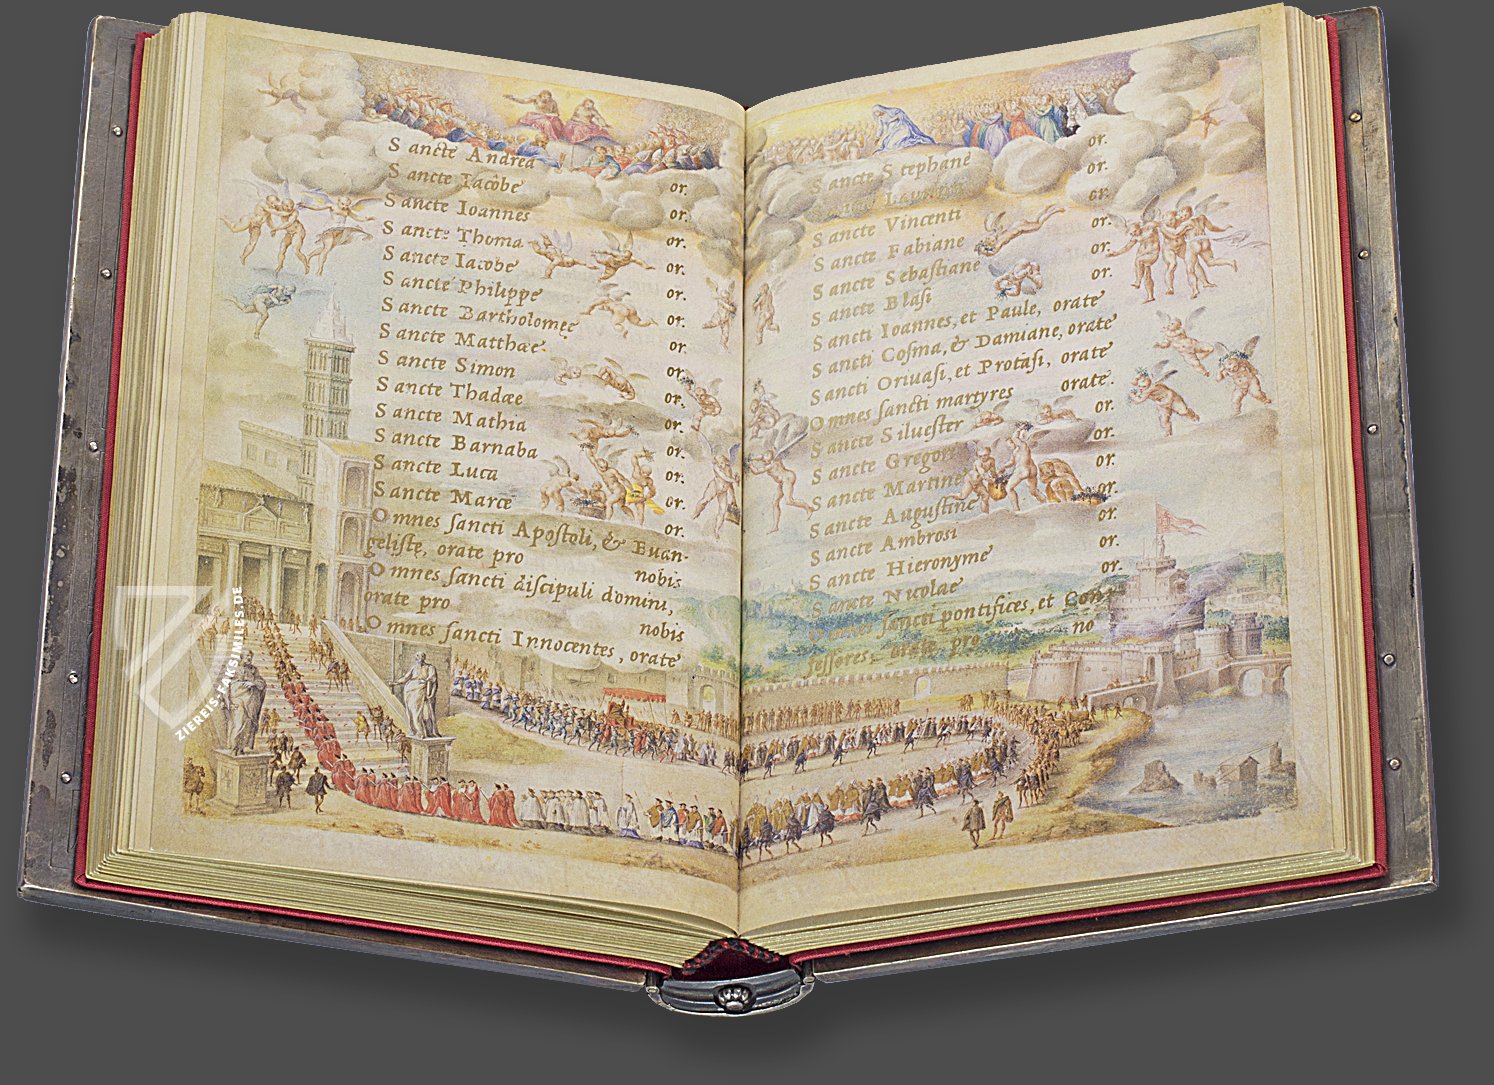 Sancte Andrea
Sancte Iacobe or.
Sancte Ioannes or.
Sancte Thoma or.
Sancte Iacobe or.
Sancte Philippe or.
Sancte Bartholomeę or.
Sancte Matthæe or.
Sancte Simon or.
Sancte Thadæe or.
Sancte Mathia or.
Sancte Barnaba or.
Sancte Luca or.
Sancte Marce or.
Omnes sancti Apostoli, & Euan- or.
gelistę, orate pro nobis
Omnes sancti discipuli domini,
orate pro nobis
Omnes sancti Innocentes, orate
23
Sancte Stephane or.
or.
Sancte Vincenti or.
Sancte Fabiane or.
Sancte Sebastiane or.
Sancte Blasi or.
Sancti Ioannes, et Paule, orate
Sancti Cosma, & Damiane, orate
Sancti Oriuasi, et Protasi, orate
Omnes sancti martyres orate.
Sancte Siluester or.
Sancte Gregori or.
Sancte Martine or.
Sancte Augustine or.
Sancte Ambrosi or.
Sancte Hieronyme or.
Sancte Nicolae or.
Omnes sancti pontifices, et Con
fessores, orate pro no
ZIEREIS-FAKSIMILES.DE